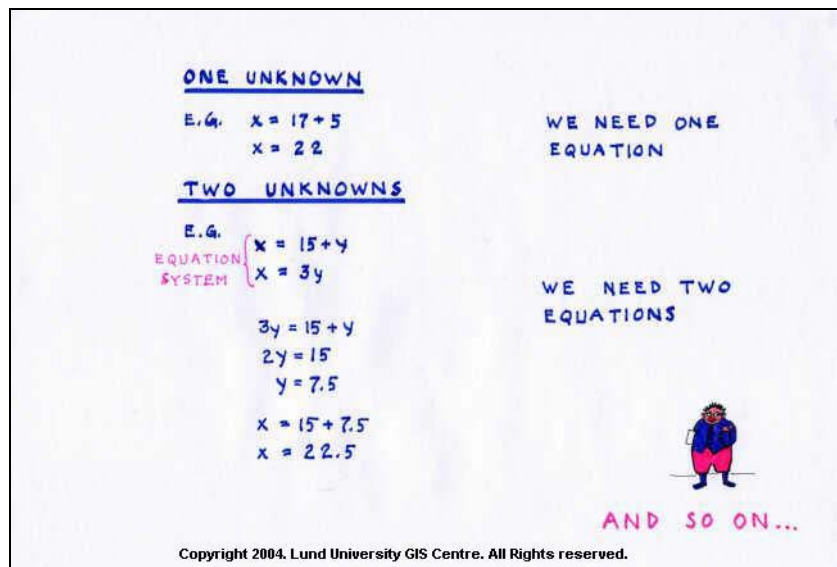 ONE UNKNOWN
E.G. x = 17 + 5
x = 22
WE NEED ONE
EQUATION
TWO UNKNOWNS
E.G.
EQUATION
SYSTEM
x = 15 + y
x = 3y
WE NEED TWO
EQUATIONS
3y = 15 + y
2y = 15
y = 7.5
x = 15 + 7.5
x = 22.5
AND SO ON...
Copyright 2004. Lund University GIS Centre. All Rights reserved.